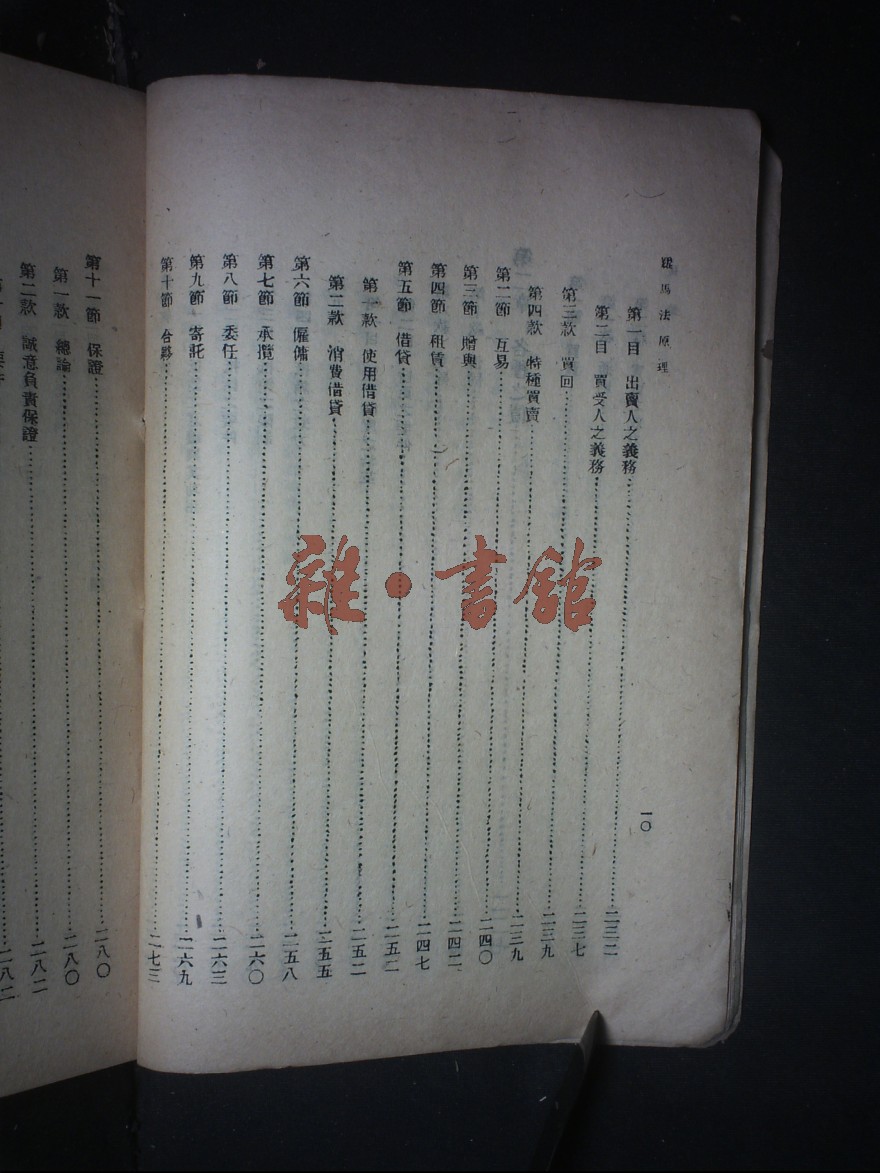 羅馬法原理
一〇
第一目 出賣人之義務……二三二
第二目 買受人之義務……二三七
第三款 買回……二三九
第四款 特種買賣……二三九
第二節 互易……二四〇
第三節 贈與……二四二
第四節 租賃……二四七
第五節 借貸……二五二
第一款 使用借貸……二五二
第二款 消費借貸……二五五
第六節 僱傭……二五八
第七節 承攬……二六〇
第八節 委任……二六三
第九節 寄託……二六九
第十節 合夥……二七三
第十一節 保證……二八〇
第一款 總論……二八〇
第二款 誠意負責保證……二八二
二八二
雜·書館